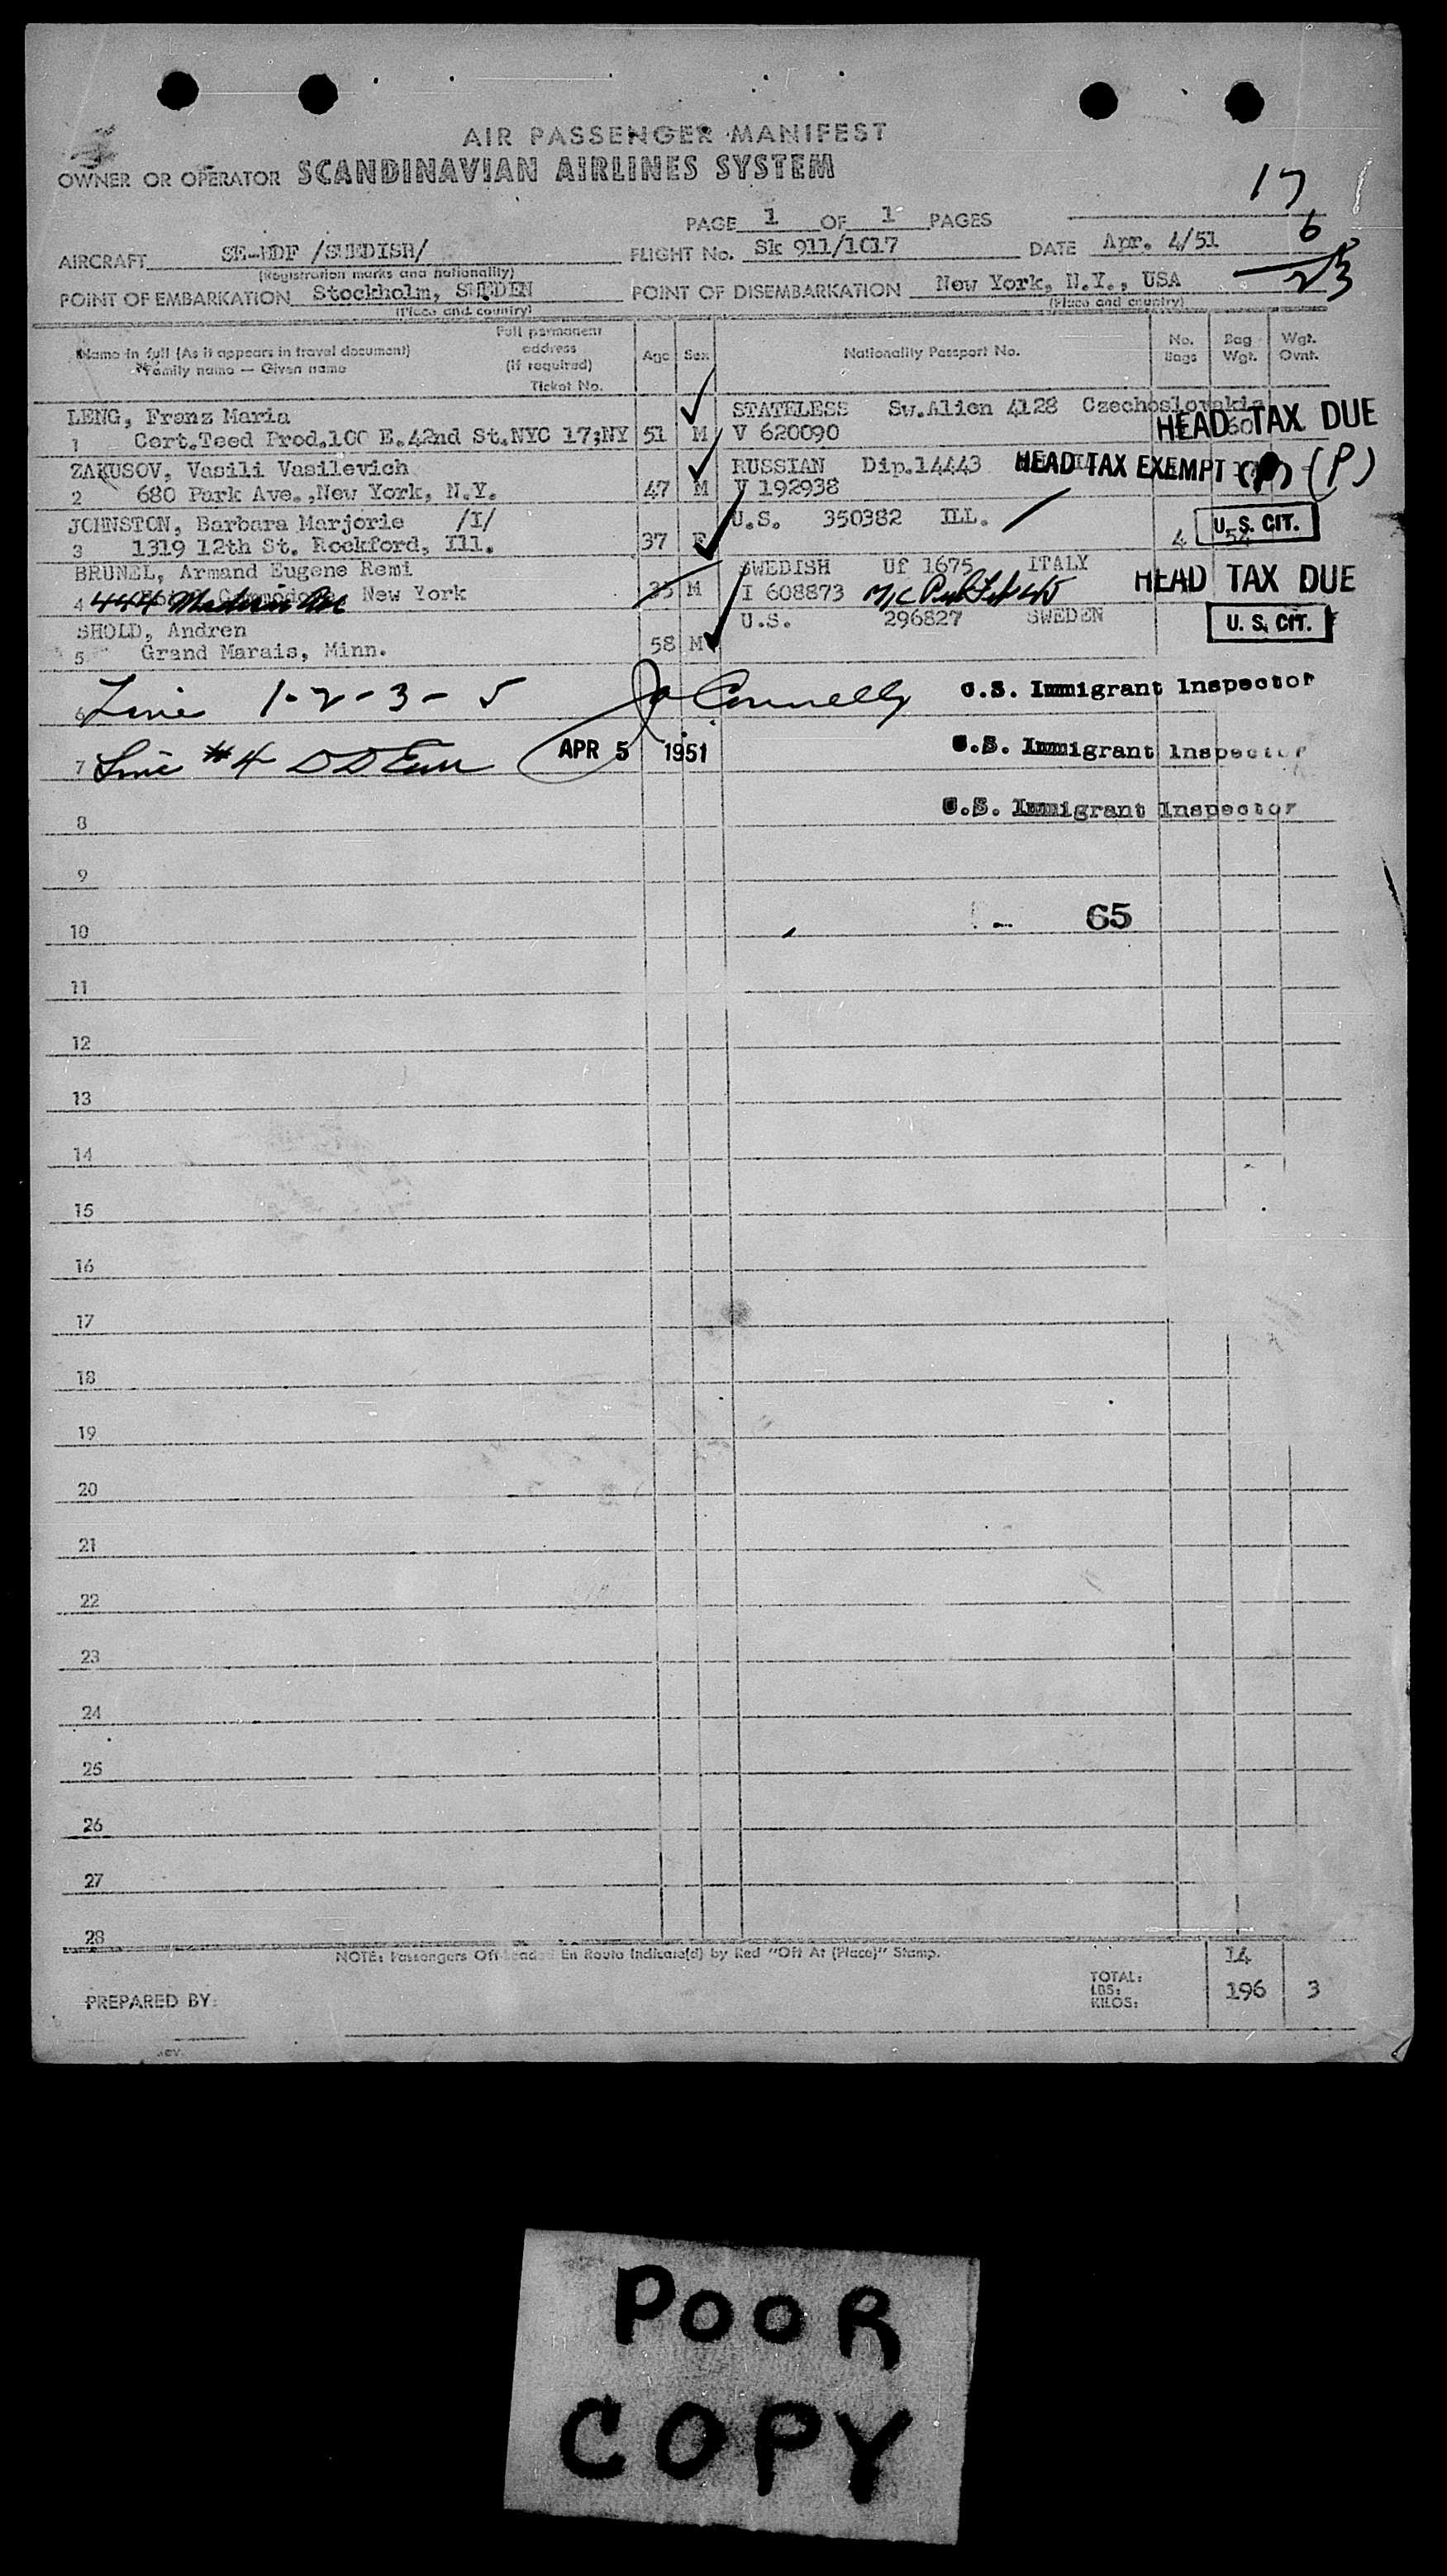 AIR PASSENGER MANIFEST
OWNER OR OPERATOR SCANDINAVIAN AIRLINES SYSTEM
17
6
23
PAGE 1 OF 1 PAGES
AIRCRAFT /SWEDISH/ FLIGHT No. Sk 911/1017 DATE Apr. 4/51
(Registration marks and nationality)
POINT OF EMBARKATION Stockholm, SWEDEN POINT OF DISEMBARKATION New York, N.Y., USA
(Place and country) (Place and country)
Name in full (As it appears in travel document)
Family name — Given name
Full permanent address (if required)
Ticket No.
Age Sex Nationality Passport No. No. Bags Bag Wgt. Wgt. Ovnt.
LENG, Franz Maria STATELESS Sw.Alien 4128 Czechoslovakia
1 Cert.Teed Prod.100 E.42nd St.NYC 17;NY 51 M V 620090 60 HEAD TAX DUE
ZAKUSOV, Vasili Vasilevich RUSSIAN Dip.14443 HEAD TAX EXEMPT (P) (P)
2 680 Park Ave.,New York, N.Y. 47 M V 192938
JOHNSTON, Barbara Marjorie /I/ U.S. 350382 ILL. U.S. CIT.
3 1319 12th St. Rockford, Ill. 37 F 4 54
BRUNEL, Armand Eugene Remi SWEDISH Uf 1675 ITALY HEAD TAX DUE
4 444 Madison Ave New York 35 M I 608873
SHOLD, Andren U.S. 296827 SWEDEN U.S. CIT.
5 Grand Marais, Minn. 58 M
6 Line 1-2-3-5 Connelly U.S. Immigrant Inspector
7 Line #4 APR 5 1951 U.S. Immigrant Inspector
8 U.S. Immigrant Inspector
9
65
10
11
12
13
14
15
16
17
18
19
20
21
22
23
24
25
26
27
28
NOTE: Passengers Off-Loaded En Route Indicate(d) by Red "Off At (Place)" Stamp.
14
PREPARED BY: TOTAL: LBS: KILOS: 196 3
POOR
COPY